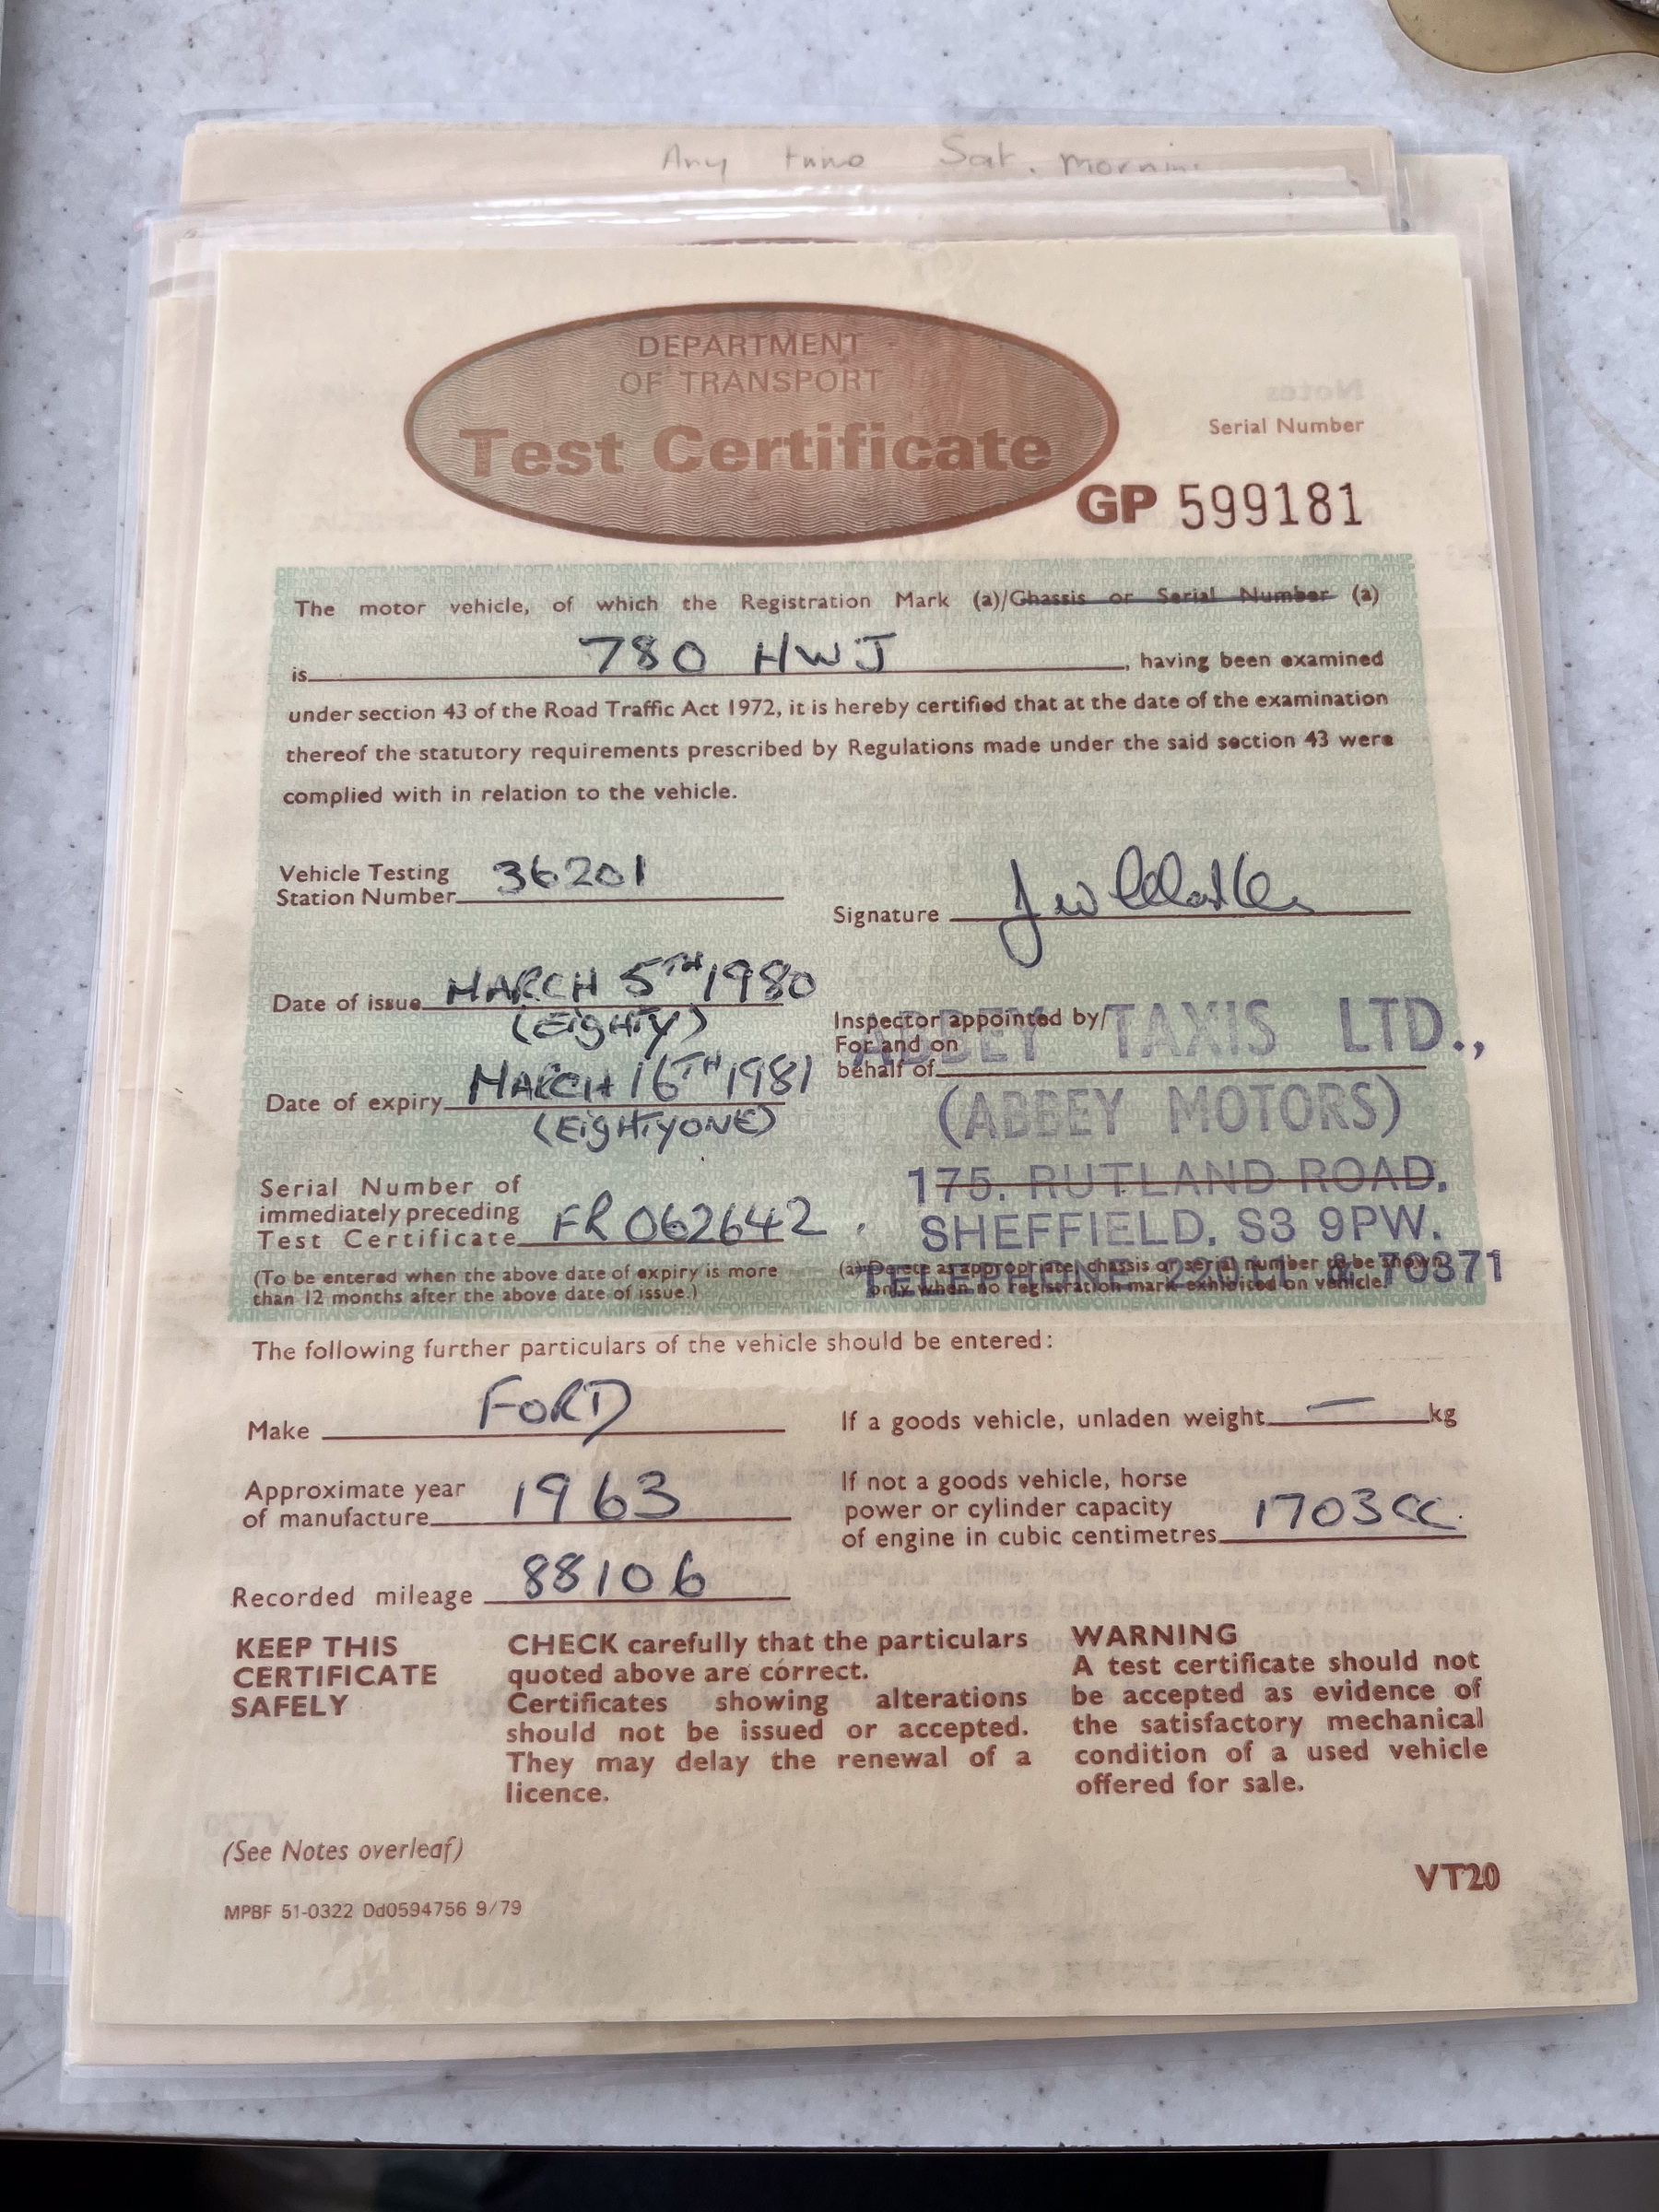 Any time Sat.
DEPARTMENT
OF TRANSPORT
Test Certificate
Serial Number
GP 599181
The motor vehicle, of which the Registration Mark (a)/Chassis or Serial Number (a)
is 780 HWJ, having been examined
under section 43 of the Road Traffic Act 1972, it is hereby certified that at the date of the examination
thereof the statutory requirements prescribed by Regulations made under the said section 43 were
complied with in relation to the vehicle.
Vehicle Testing
Station Number 36201
Signature
Date of issue MARCH 5TH 1980
(EIGHTY)
Inspector appointed by/
For and on
behalf of
ABBEY TAXIS LTD.,
(ABBEY MOTORS)
175. RUTLAND ROAD,
SHEFFIELD, S3 9PW.
TELEPHONE 70371
Date of expiry MARCH 16TH 1981
(EIGHTYONE)
Serial Number of
immediately preceding
Test Certificate FR 062642
(To be entered when the above date of expiry is more
than 12 months after the above date of issue.)
(a) Delete as appropriate, chassis or serial number to be shown
only when no registration mark exhibited on vehicle.
The following further particulars of the vehicle should be entered:
Make FORD
If a goods vehicle, unladen weight — kg
Approximate year
of manufacture 1963
If not a goods vehicle, horse
power or cylinder capacity
of engine in cubic centimetres 1703 cc.
Recorded mileage 88106
KEEP THIS
CERTIFICATE
SAFELY
CHECK carefully that the particulars
quoted above are correct.
Certificates showing alterations
should not be issued or accepted.
They may delay the renewal of a
licence.
WARNING
A test certificate should not
be accepted as evidence of
the satisfactory mechanical
condition of a used vehicle
offered for sale.
(See Notes overleaf)
VT20
MPBF 51-0322 Dd0594756 9/79